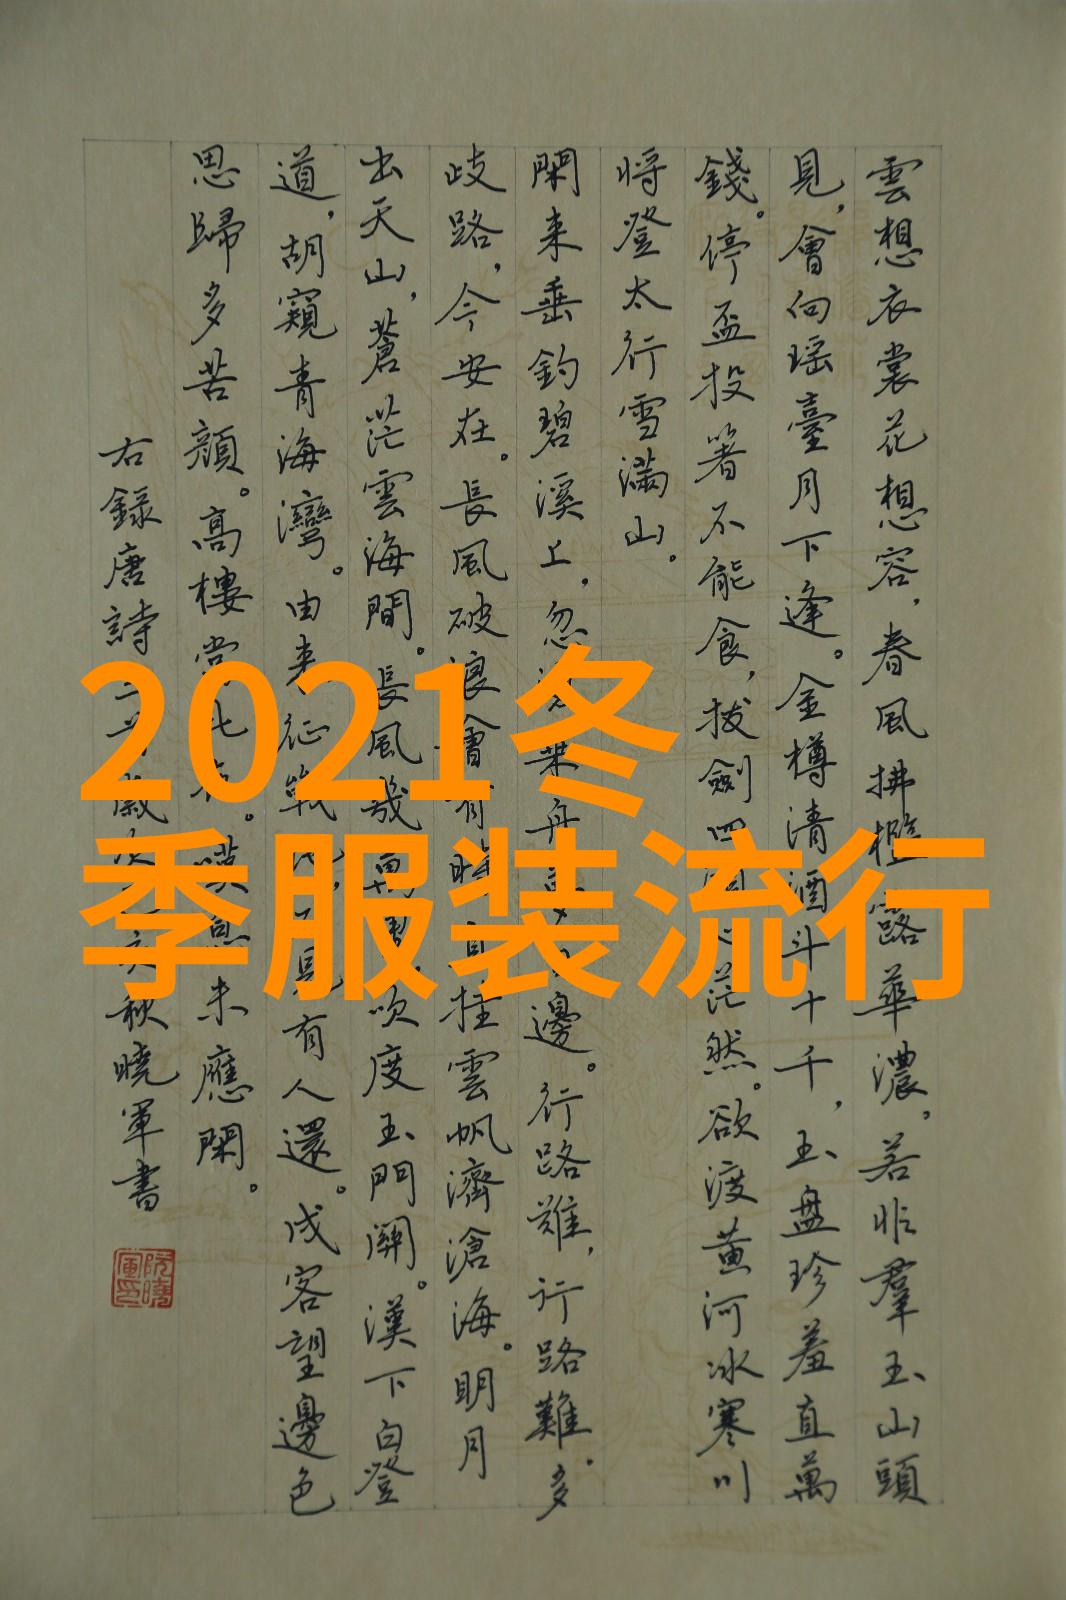 雲想衣裳花想容，春風拂檻露華濃，若非羣玉山頭
見，會向瑶臺月下逢。金樽清酒斗十千，玉盤珍羞直萬
錢。停盃投箸不能食，拔劍四茫然。欲渡黄河冰寒川
将登太行雪滿山。
閑来垂釣碧溪上，忽乘舟邊。行路難，行路難。多
歧路，今安在。長風破浪會有時直挂雲帆濟滄海。明月
出天山，蒼茫雲海間。長風幾萬吹度玉門關。漢下白登
道，胡窺青海灣。由来征戰見有人還。戍客望邊色
思歸多苦顔。高樓當此夜。嘆息未應閑。
右録唐詩秋曉軍書
阮曉軍印
2021冬
季服装流行